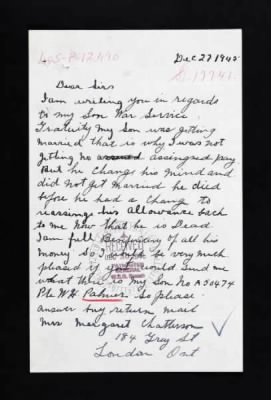 Dec 27 1945
Dear Sirs
I am writing you in regards
to my Son War Service
Gratuity My Son was getting
married that is why I was not
getting no assigned pay.
But he change his mind and
did not get Married he died
before he had a change to
reassinge his allowance back
to me Now that he is Dead
I am full Benificiary of all his
Money So I would be very much
pleased if you would send me
what there is my Son No A 50474
Pte W.H. Palmer. So please
answer buy return mail
Mrs Margaret Chatterson
184 Grey St
London Ont